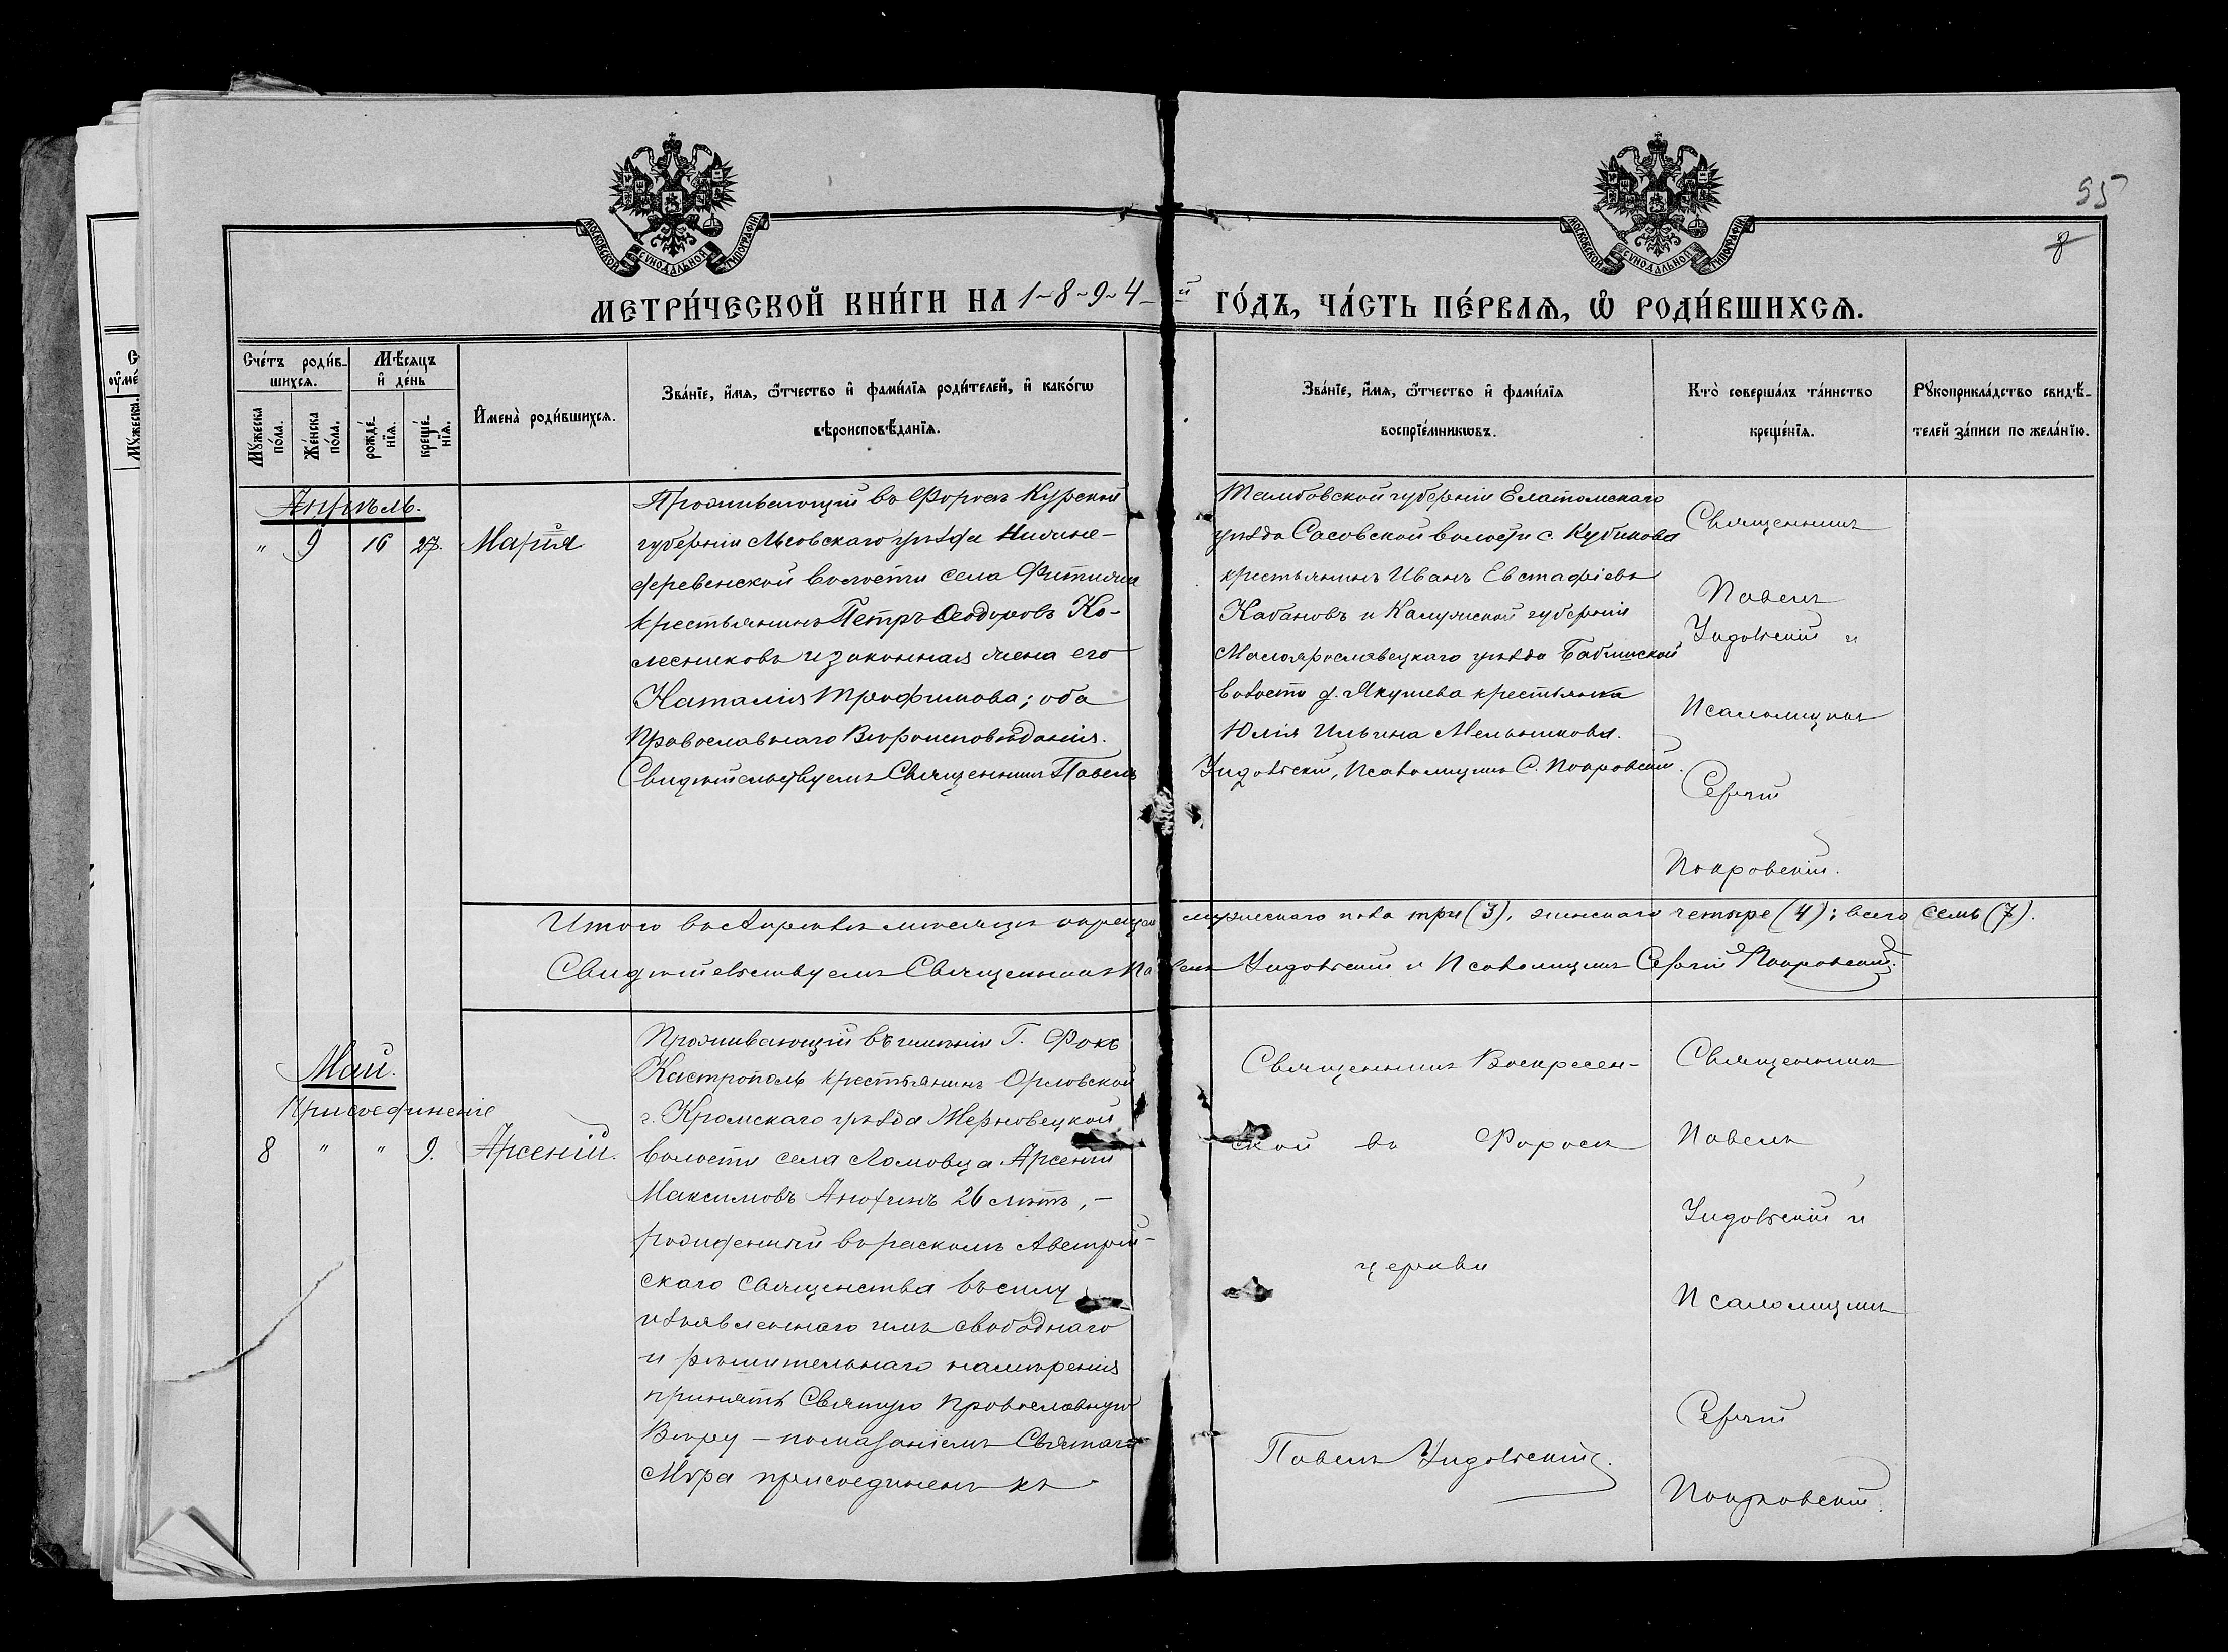 55
8
МОСКОВСКОЙ СѴНОДАЛЬНОЙ ТИПОГРАФІИ
МОСКОВСКОЙ СѴНОДАЛЬНОЙ ТИПОГРАФІИ
МЕТРИ́ЧЕСКОЙ КНИ́ГИ НА 1894й ГО́ДЪ, ЧА́СТЬ ПЕ́РВАѦ, Ѡ҆ РОДИ́ВШИХСѦ.
Сче́тъ роди́в-
шихсѧ.
Мѣ́сѧцъ
и҆ де́нь
Мꙋ́жеска
по́ла.
Же́нска
по́ла.
рожде́-
нїѧ.
креще́-
нїѧ.
И҆мена̀ роди́вшихсѧ.
Зва́нїе, и҆́мѧ, ѻ҆́тчество и҆ фами́лїѧ роди́телей, и҆ како́гѡ
вѣроисповѣ́данїѧ.
Зва́нїе, и҆́мѧ, ѻ҆́тчество и҆ фами́лїѧ
воспрїе́мникѡвъ.
Кто̀ соверша́лъ та́инство
креще́нїѧ.
Рꙋкоприкла́дство свидѣ́-
телей за́писи по жела́нїю.
Апрѣль.
" 9 16 27. Марія
Проживающій въ Форосѣ Курской
губерніи Льговскаго уѣзда Нижне-
деревенской волости села
крестьянинъ Петръ Ѳеодоровъ Ко-
лесниковъ и законная жена его
Наталія Трофимова; оба
Православнаго Вѣроисповѣданія.
Свидѣтельствуемъ Священникъ Павелъ
Тамбовской губерніи Елатомскаго
уѣзда Сасовской волости с. Кубикова
крестьянинъ Иванъ Евстафіевъ
Кабановъ и Калужской губерніи
Малоярославецкаго уѣзда Бабинской
волости д. Якушева крестьянка
Юлія Ильина Мельникова.
Ундольскій, Псаломщикъ С. Покровскій.
Священникъ
Павелъ
Ундольскій и
Псаломщикъ
Сергій
Покровскій.
Итого въ Апрѣлѣ мѣсяцѣ мужескаго пола три (3), женскаго четыре (4); всего семь (7).
Свидѣтельствуемъ Священникъ Павелъ Ундольскій и Псаломщикъ Сергій Покровскій.
Май.
Присоединеніе
8 " " 9. Арсеній.
Проживающій въ имѣніи Г. Фокъ
Кастрополь крестьянинъ Орловской
г. Кромскаго уѣзда Жерновецкой
волости села Ломовца Арсеній
Максимовъ Анохинъ 26 лѣтъ, –
рожденный въ расколѣ Австрій-
скаго священства въ силу
изъявленнаго имъ свободнаго
и рѣшительнаго намѣренія
принять Святую Православную
Вѣру – помазаніемъ Святаго
Мѵра присоединенъ къ
Священникъ Воскресен-
ской въ Форосѣ
церкви
Павелъ Ундольскій.
Священникъ
Павелъ
Ундольскій и
Псаломщикъ
Сергій
Покровскій.